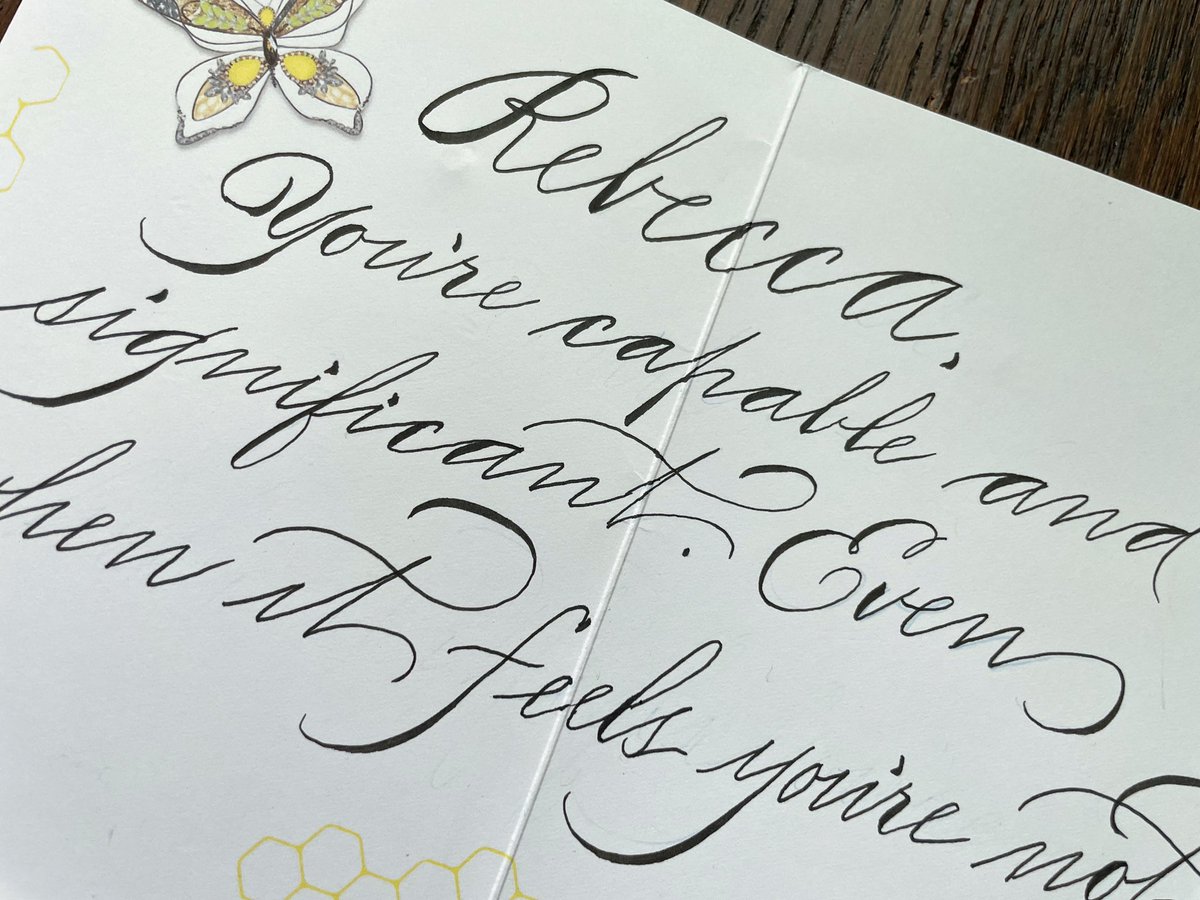 Rebecca,
You're capable and
significant. Even
hen it feels you're not